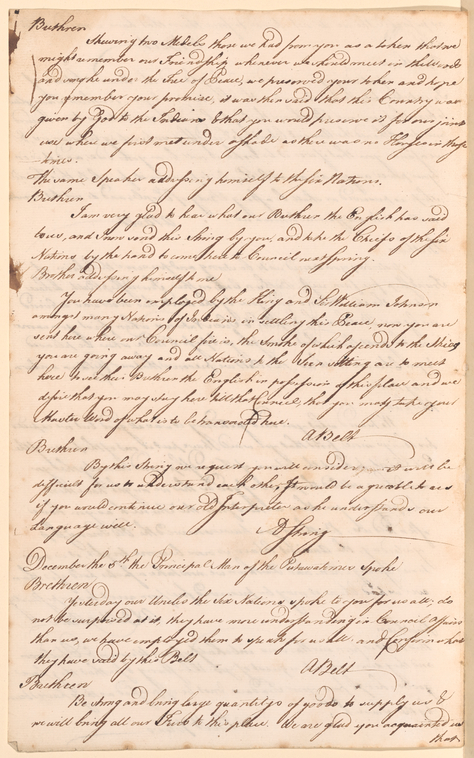 Brethren
Shewing two Medels those we had from you as a token that we
might remember our Friendship whenever we should meet in the Woods
and smoke under the Tree of Peace, we preserved your token and hope
you remember your promise, it was then said that this Country was
given by God to the Indians & that you would preserve it for our joint
use where we first met under a shade as there was no Houses in those
times.
The same Speaker addressing himself to the Six Nations.
Brethren
I am very glad to hear what our Brethren the English has said
to us, and I now send this String by you, and take the Chiefs of the Six
Nations by the hand to come here to Council next Spring.
Brother addressing himself to me
You have been employed by the King and Sr. William Johnson
amongst many Nations of Indians in settling this Peace now you are
sent here where our Council fire is, the Smoke of which ascends to the Skies
you are going away and all Nations to the Sun setting are to meet
here to see their Brethren the English in possession of this place and we
desire that you may stay here till that Council, that you may take your
Master Word of what is to be transacted here.
A Belt
Brethren
By this String we request you will consider it will be
difficult for us to understand each other, It would be agreeable to us
if you would continue our old Interpreter as he understands our
Language well.
A String
December the 5th the Principal Man of the Putawatimes Spoke
Brethren
Yesterday our Uncles the Six Nations spoke to you for us all; do
not be surprised at it, they have more understanding in Council affairs
than us, we have employed them to speak for us all, and Confirm what
they have said by this Belt
A Belt
Brethren
Be strong and bring large quantitys of goods to supply us &
we will bring all our Furs to this place. We are glad you acquainted us
that